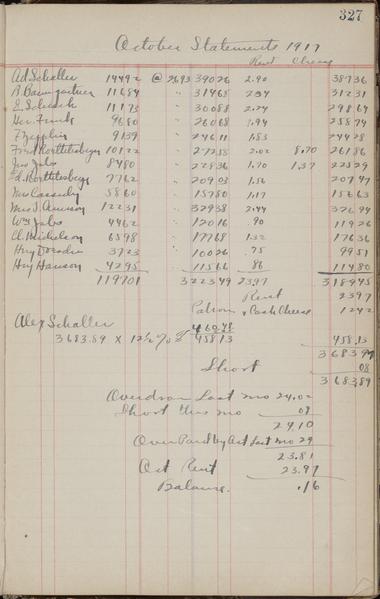 327
October Statements 1917
Rent Cheese
Ad Schaller 14492 @ 2693 39026 2.90 38736
B. Baumgartner 11684 " 31468 234 31231
E. Schock 11173 " 30088 2.24 29864
Her. Funk 9680 " 26068 1.94 25874
F. Zepplin 9139 " 24611 1.83 24428
Fred 10122 " 27258 2.02 8.70 26186
Jno Jobs 8480 " 22836 1.70 1.37 22529
7762 " 20903 1.56 20747
Mrs Cassidy 5860 " 15780 1.17 15663
Mrs J. 12231 " 32938 2.44 32694
Wm Jobs 4462 " 12016 .90 11926
Cl. Nicholson 6598 " 17768 1.32 17636
Hry 3723 " 10026 .75 9951
Hry Hanson 4295 " 11566 .86 11480
119701 322349 2397 318945
Rent 2397
Patron & Cash Cheese 1242
Alex Schaller 460.48
3683.89 X 12½ % 458.13 458.13
3683.97
Short 08
3683.89
Overdrawn Last mo 24.02
Short this mo 08
2410
Over Paid by Act last mo 29
23.81
Act Rent 23.97
Balance. .16